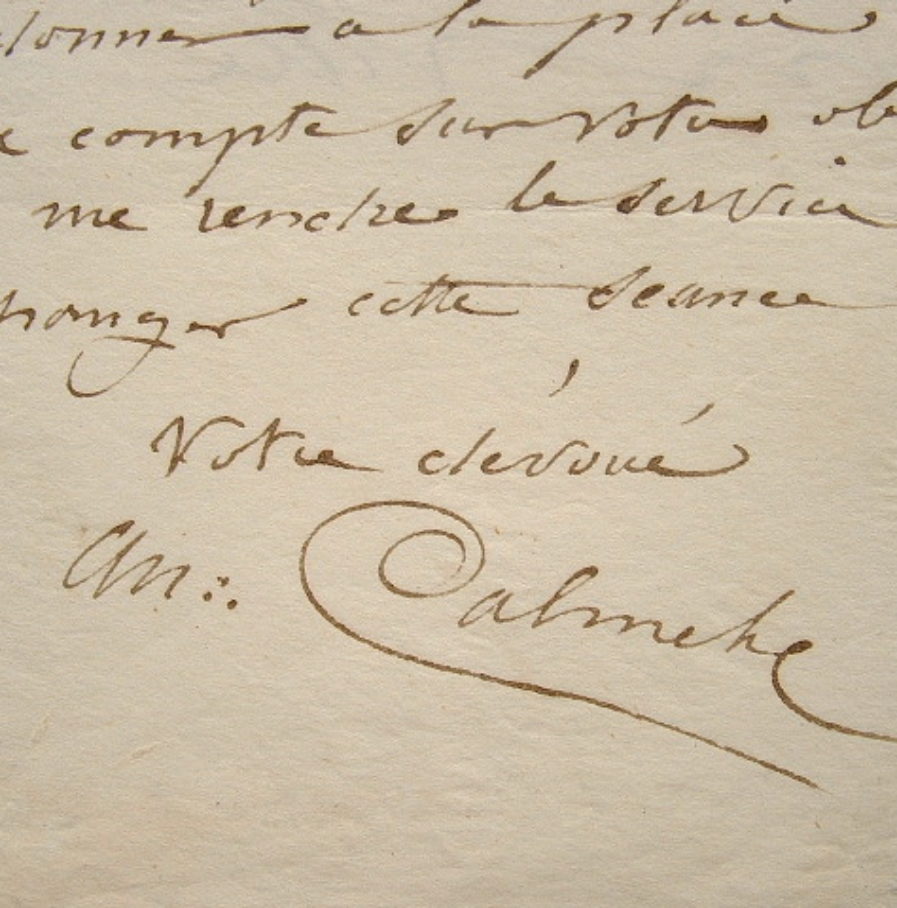 donner a la place
compte sur votre ob
me rendre le service
cette seance
Votre dévoué
An:. Calmels